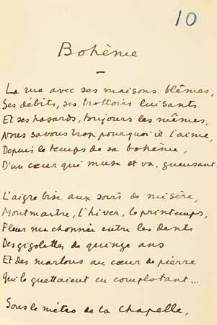 10
Bohème
La rue avec ses maisons blêmes,
Ses débits, ses trottoirs luisants
Et ses hasards, toujours les mêmes,
Nous savons trop pourquoi je l'aime,
Depuis le temps de sa bohème,
D'un cœur qui muse et va, gueusant.
L'aigre bise aux soirs de misère,
Montmartre, l'hiver, le printemps,
Pleur me chonnée entre les dents
Des gigolettes de quinze ans
Et des marlous au cœur de pierre
Qui le guettaient en complotant...
Sous le métro de la Chapelle,